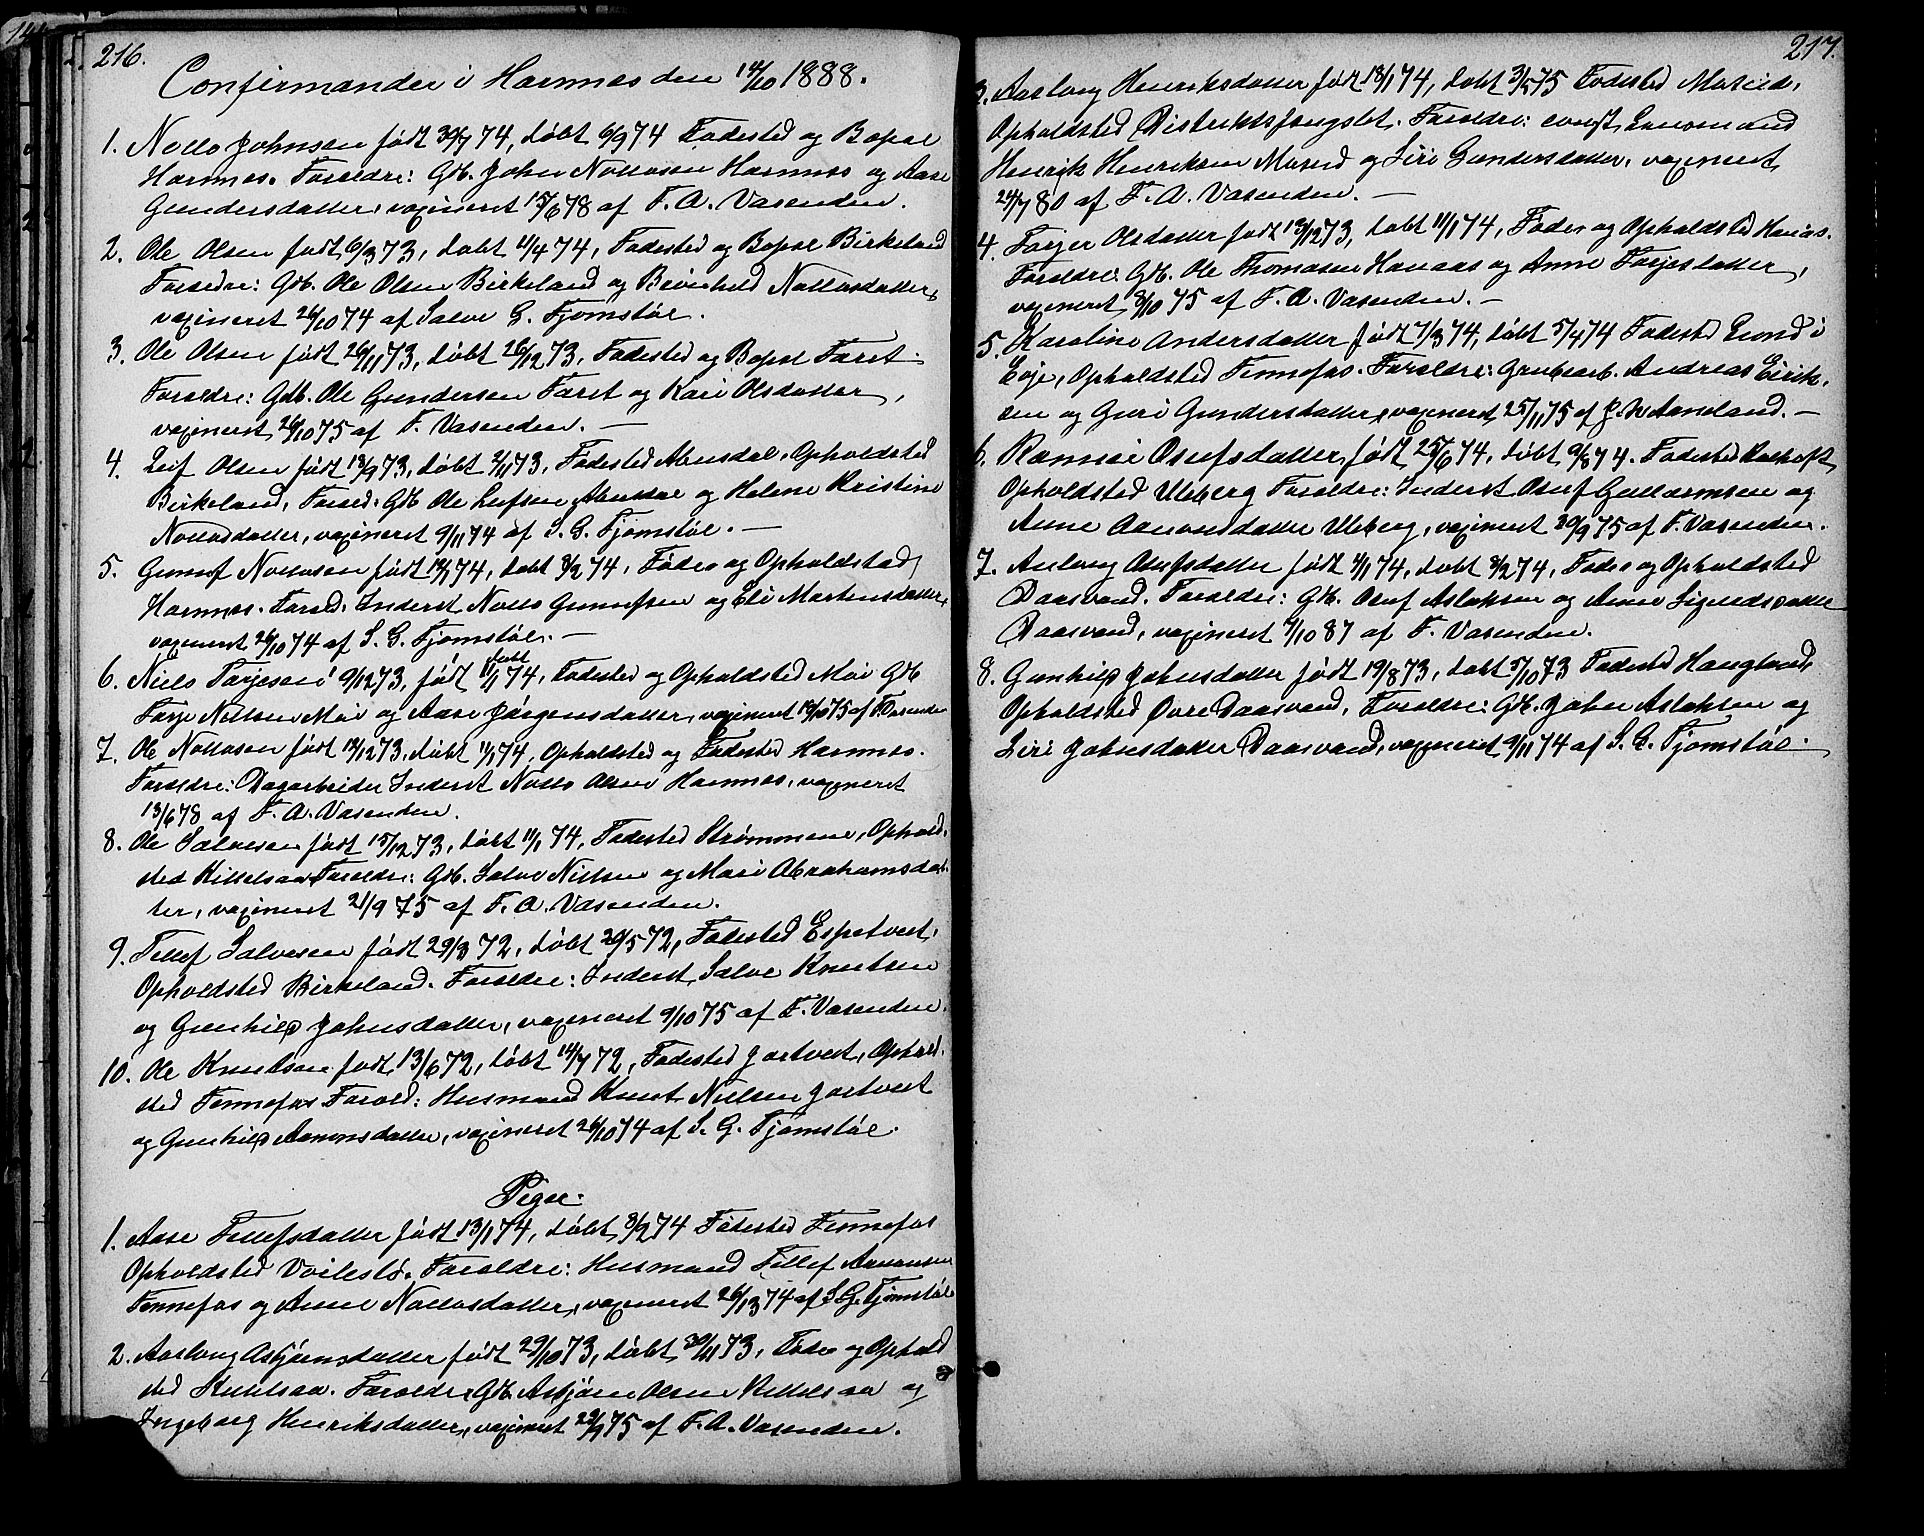 216.
Confirmander i Hornnes den 14/10 1888.
1. Nottov Johnsen født 30/7 74, døbt 6/9 74 Fødested og Bopæl
Hornnes. Forældre: Gdb. John Nottosen Hornnes og Aase
Gundersdatter, vaxineret 15/6 78 af F. A. Vasenden.
2. Ole Olsen født 6/3 73, døbt 11/4 74, Fødested og Bopæl Birkeland
Forældre: Gdb. Ole Olsen Birkeland og Nottosdatter,
vaxineret 26/10 74 af Salve G. Fjomstøl.
3. Ole Olsen født 26/11 73, døbt 26/12 73, Fødested og Bopæl Faret.
Forældre: Gdb. Ole Gundersen Faret og Kari Olsdatter,
vaxineret 26/10 75 af F. Vasenden. —
4. Leif Olsen født 18/9 73, døbt 2/11 73, Fødested Abusdal, Opholdsted
Birkeland, Foræld: Gdb Ole Leifsen Abusdal og Helene Kristine
Nottosdatter, vaxineret 9/11 74 af S. G. Fjomstøl. —
5. Gunuf Nottosen født 74, døbt 8/2 74, Føde og Opholdsted
Hornnes. Foræld. Inderst Notto Gunufsen og Eli Mortensdatter,
vaxineret 26/10 74 af S. G. Fjomstøl. —
6. Niels Tarjesen 9/12 73, født døbt 11/1 74, Fødested og Opholdsted Moi Gdb
Tarje Nielsen Moi og Aase Jørgensdatter, vaxineret 75 af F. Vasenden
7. Ole Nottosen født 73, døbt 11/1 74, Opholdsted og Fødested Hornnes.
Forældre: Dagarbeider Inderst Notto Olsen Hornnes, vaxineret
13/6 78 af F. A. Vasenden.
8. Ole Salvesen født 15/12 73, døbt 11/1 74, Fødested Strømmene, Ophold-
sted Kittelsaa Forældre: Gdb. Salve Nielsen og Mari Abrahamsdat-
ter, vaxineret 21/9 75 af F. A. Vasenden.
9. Tellef Salvesen født 29/3 72, døbt 20/5 72, Fødested Espetveit,
Opholdsted Birkeland. Forældre: Inderst Salve Knutsen
og Gunhild Johnsdatter, vaxineret 9/10 75 af F. Vasenden.
10. Ole Knutson født 13/6 72, døbt 14/7 72, Fødested Jortveit, Ophold-
sted Fennefos Foræld: Husmand Knut Nielsen Jortveit
og Gunhild Aanonsdatter, vaxineret 26/10 74 af S. G. Fjomstøl.
Piger.
1. Aase Tellefsdatter født 13/1 74, døbt 8/2 74 Fødested Fennefos
Opholdsted . Forældre: Husmand Tellef Aanonsen
Fennefos og Anne Nottosdatter, vaxineret 74 af S. G. Fjomstøl
2. Aaslaug Asbjørnsdatter født 29/10 73, døbt 30/11 73, Føde og Ophold
sted Kittelsaa. Forældre Gdb. Asbjørn Olsen Kittelsaa og
Ingeborg Henriksdatter, vaxineret 75 af F. A. Vasenden.
217.
3. Aaslaug Henriksdatter født 18/1 74, døbt 3/5 75 Fødested Moseid,
Opholdsted Distriktsfængslet. Forældre: const. Lensmand
Henrik Henriksen Moseid og Siri Gundersdatter, vaxineret
24/7 80 af F. A. Vasenden. —
4. Torjer Olsdatter født 13/12 73, døbt 11/1 74, Føde og Opholdsted Hanaas.
Forældre: Gdb. Ole Thomasen Hanaas og Anne Torjesdatter,
vaxineret 8/10 75 af F. A. Vasenden. —
5. Karoline Andersdatter født 7/3 74, døbt 5/4 74 Fødested i
Evje, Opholdsted Fennefos. Forældre: Grubearb. Andreas Eirik-
sen og Guri Gundersdatter, vaxineret 25/11 75 af Aamland. —
6. Rannei Osufsdatter født 25/6 74, døbt 9/8 74. Fødested
Opholdsted Uleberg Forældre: Inderst Osuf Guttormsen og
Anne Aanonsdatter Uleberg, vaxineret 20/9 75 af F. Vasenden.
7. Anlaug Osufsdatter født 4/1 74, døbt 8/2 74, Føde og Opholdsted
Daasvand. Forældre: Gdb. Osuf Aslaksen og Anne Sigurdsdatter
Daasvand, vaxineret 9/10 87 af F. Vasenden.
8. Gunhild Johnsdatter født 19/8 73, døbt 5/10 73 Fødested Haugland,
Opholdsted Øvre Daasvand, Forældre: Gdb. John Aslaksen og
Siri Johnsdatter Daasvand, vaxineret 9/11 74 af S. G. Fjomstøl.